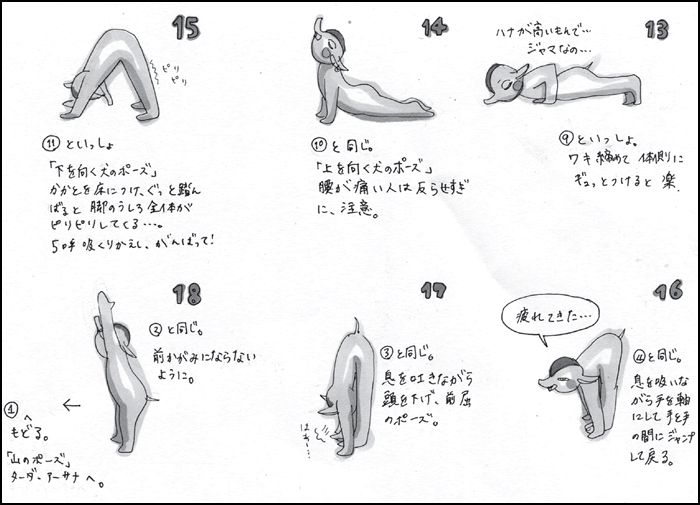 13
ハナが高いもんで…
ジャマなの…
⑨といっしょ。
ワキ締めて 体側に
ギュッとつけると 楽.
14
⑩と同じ。
「上を向く犬のポーズ」
腰が痛い人は反らせすぎ
に、注意。
15
ピリ
ピリ
⑪といっしょ
「下を向く犬のポーズ」
かかとを床につけ、ぐっと踏ん
ばると 脚のうしろ全体が
ピリピリしてくる…。
5呼吸くりかえし、がんばって!
16
疲れてきた…
④と同じ。
息を吸いな
がら手を軸
にして手と手
の間にジャンプ
して戻る。
17
③と同じ。
息を吐きながら
頭を下げ、前屈
のポーズ。
はぁー…
18
②と同じ。
前かがみにならない
ように。
←
①へ
もどる。
「山のポーズ」
ターダ・アーサナへ。